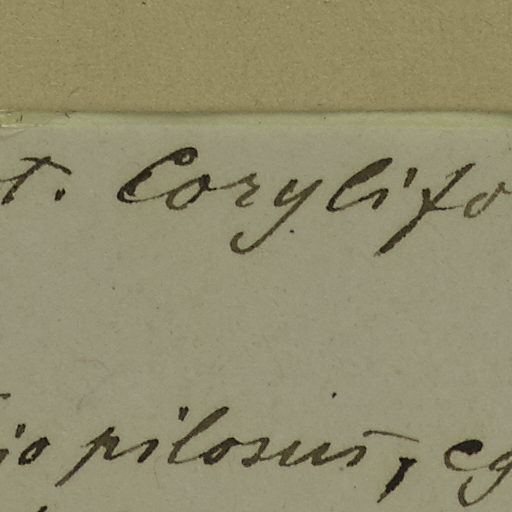 t. Corylifo
io pilosus, eg